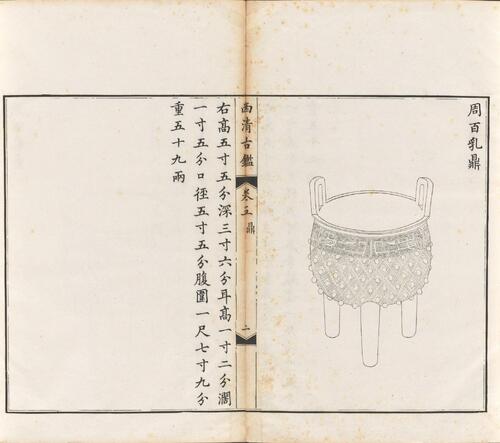 周百乳鼎
西清古鑑
卷五 鼎
二
右高五寸五分深三寸六分耳高一寸二分濶
一寸五分口徑五寸五分腹圍一尺七寸九分
重五十九兩